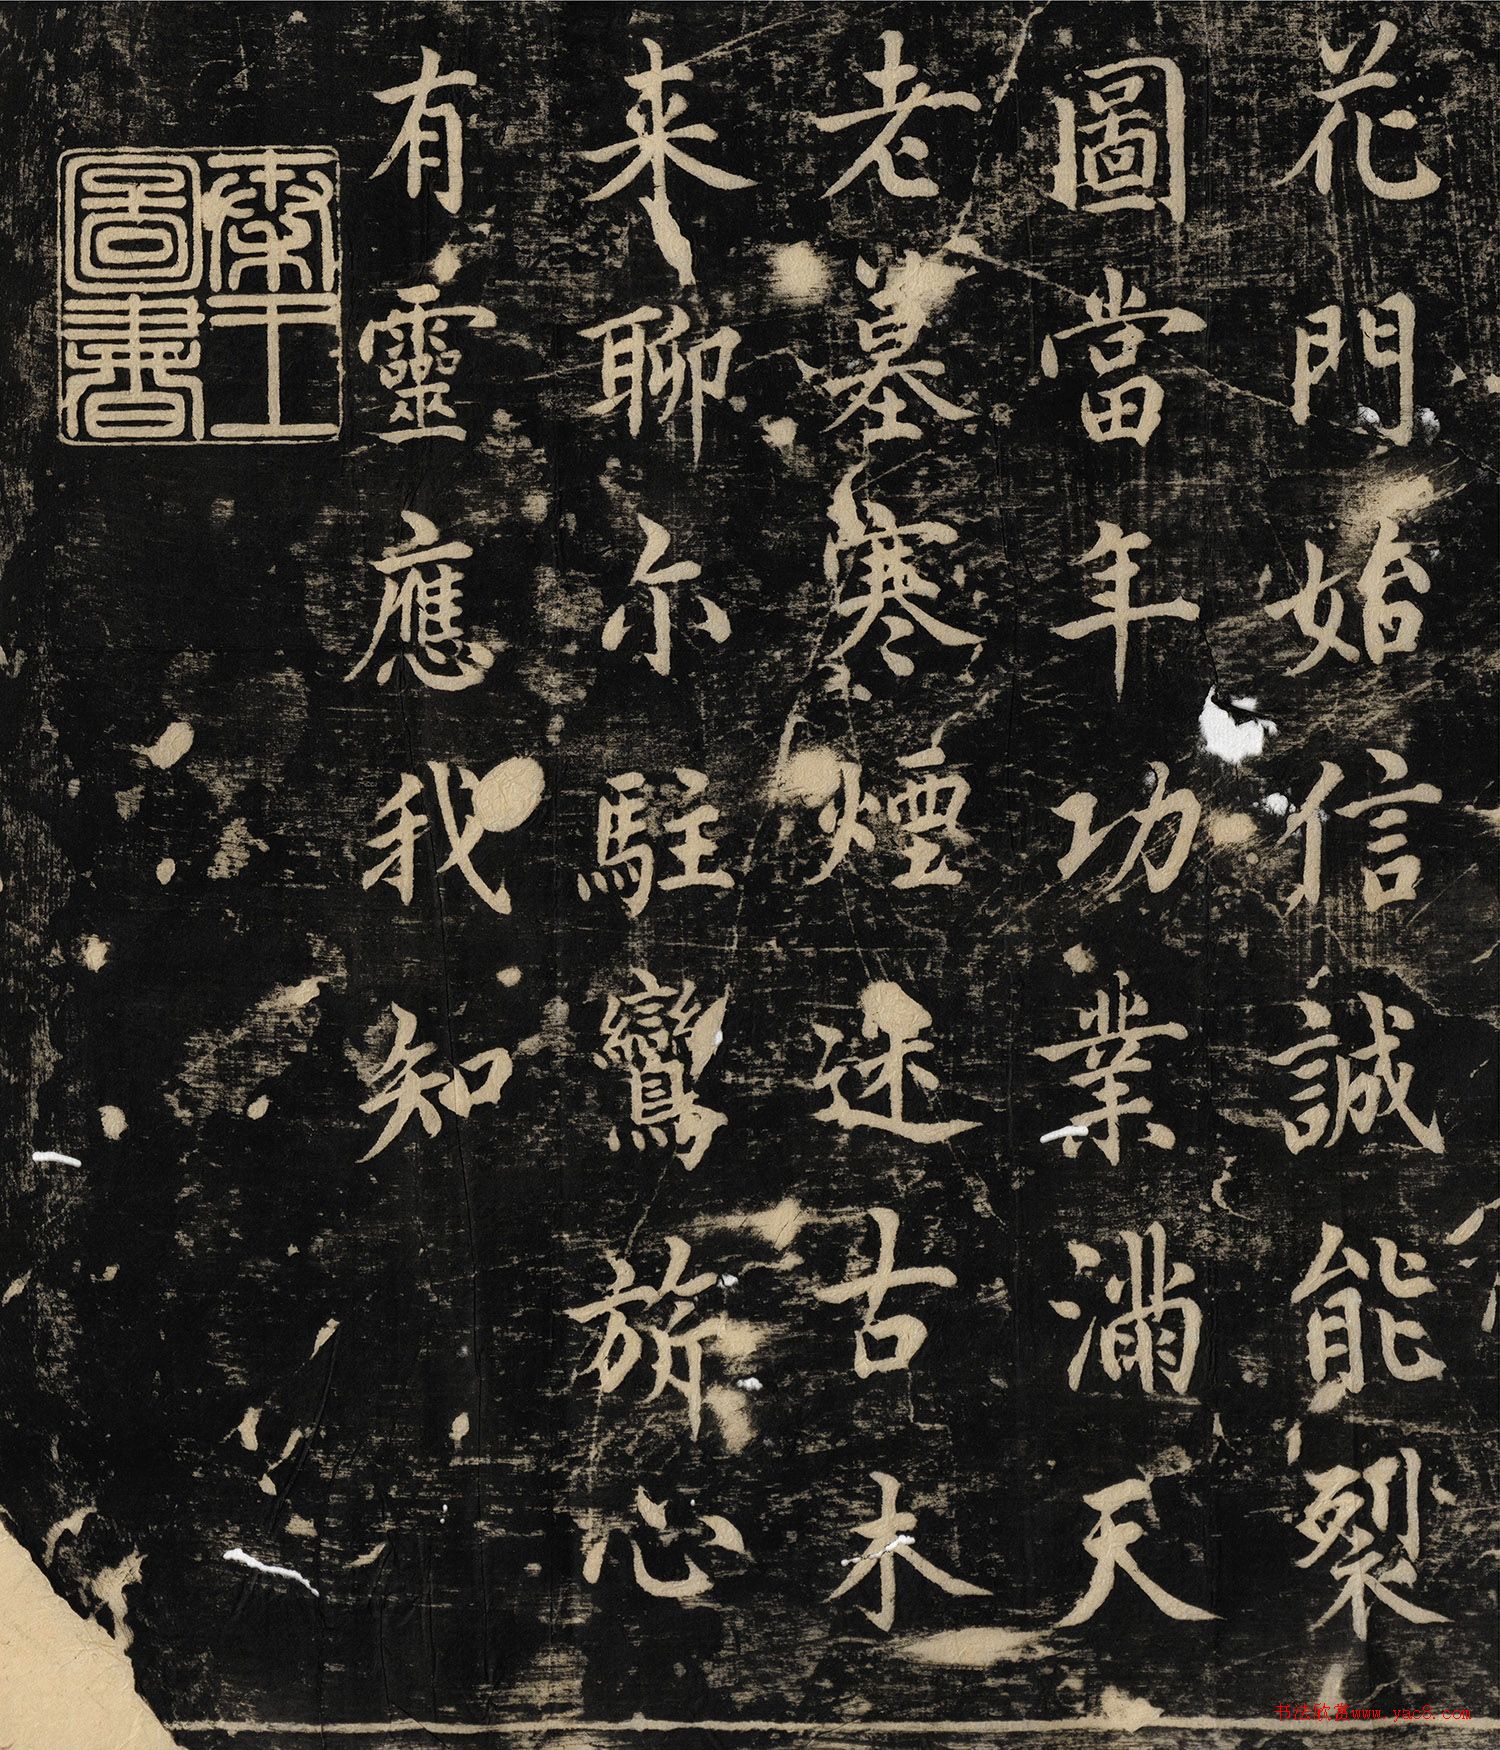 花門始信誠能裂
圖當年功業滿天
老墓寒煙迷古木
来聊尓駐鸞旂心
有靈應我知
秦王
圖書
书法欣赏www.yac8.com